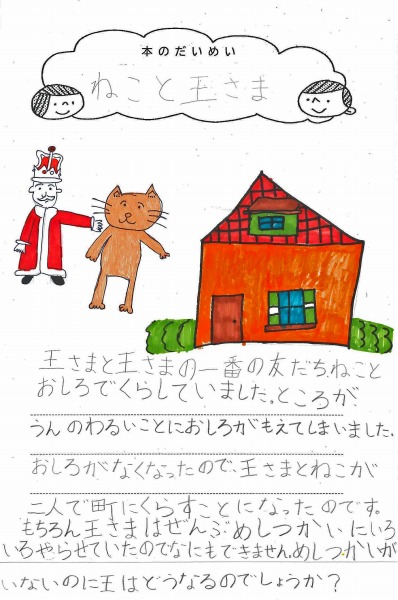 本のだいめい
ねこと王さま
王さまと王さまの一番の友だちねこと
おしろでくらしていました。ところが、
うんのわるいことにおしろがもえてしまいました。
おしろがなくなったので、王さまとねこが
二人で町にくらすことになったのです。
もちろん王さまはぜんぶめしつかいにいろ
いろやらせていたのでなにもできません。めしつかいが
いないのに王はどうなるのでしょうか？